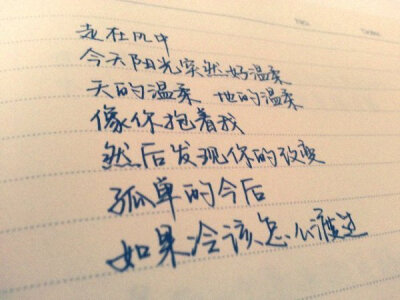 走在风中
今天阳光突然好温柔
天的温柔 地的温柔
像你抱着我
然后发现你的改变
孤单的今后
如果冷该怎么渡过